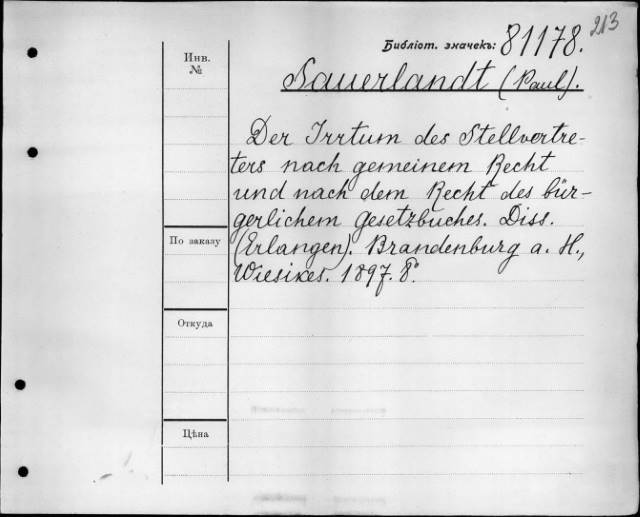 213
Библіот. значекъ: 81178.
Инв.
№
Sauerlandt (Paul).
Der Irrtum des Stellvertre-
ters nach gemeinem Recht
und nach dem Recht des bür-
gerlichem Gesetzbuches. Diss.
(Erlangen). Brandenburg a. H.,
Wiesikes. 1897. 8°.
По заказу
Откуда
Цѣна